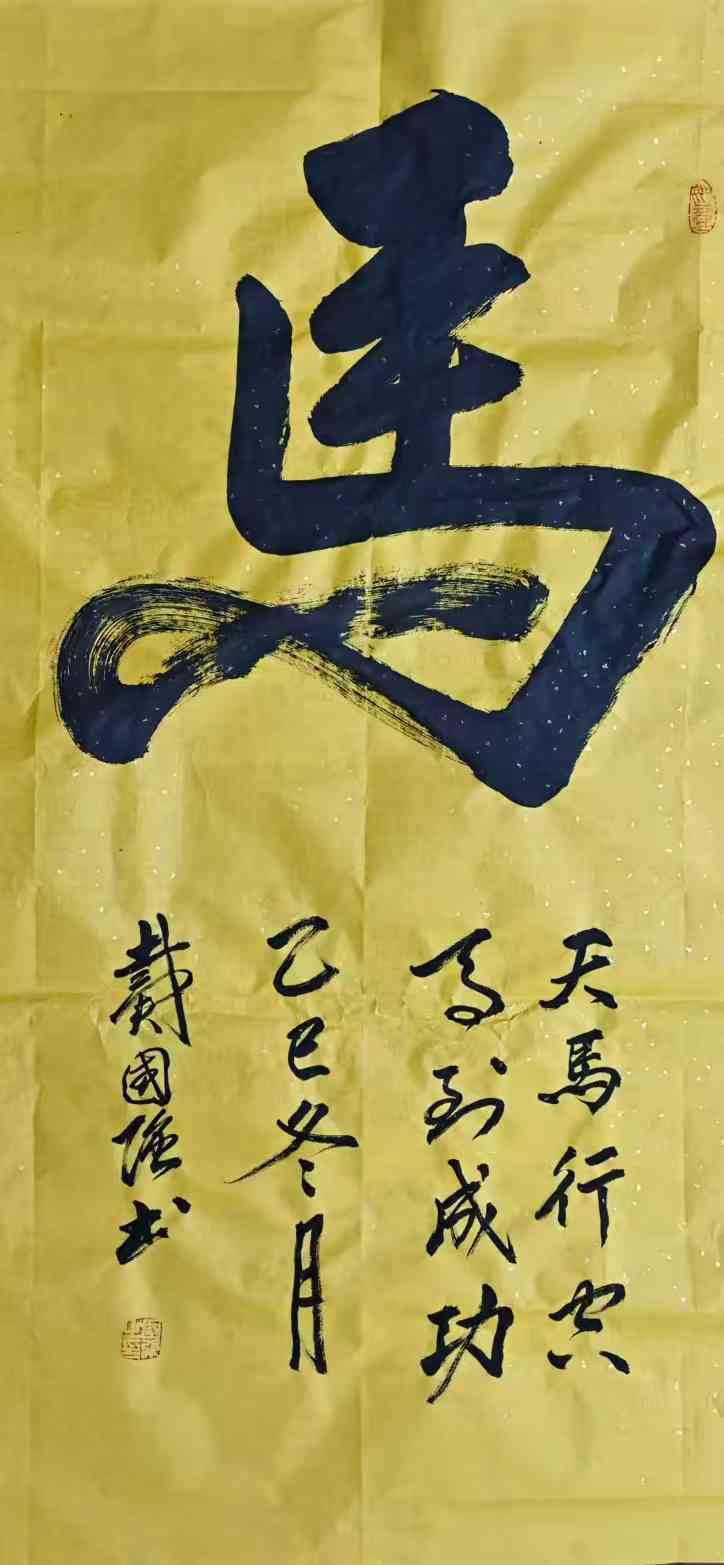 馬
天馬行空
馬到成功
乙巳冬月
戴國強书